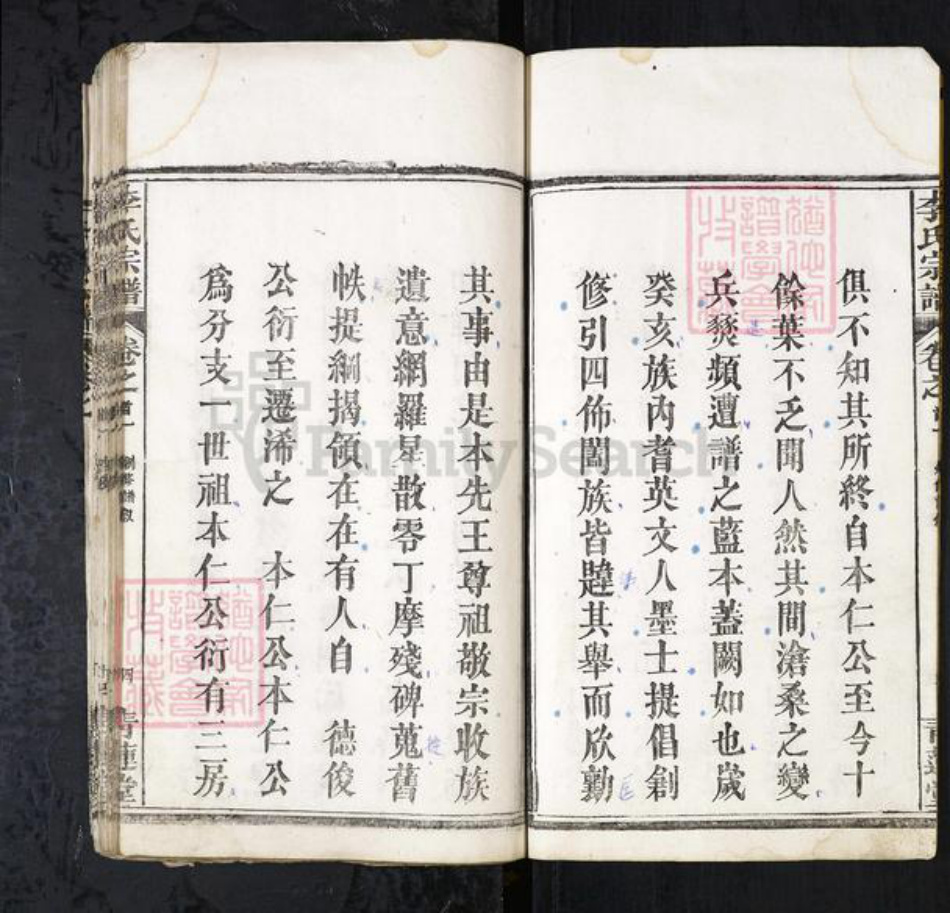 俱不知其所終自本仁公至今十
餘葉不乏聞人然其間滄桑之變
兵燹頻遭譜之藍本蓋闕如也歲
癸亥族內耆英文人墨士提倡創
修引四佈闔族皆韙其舉而欣勤
其事由是本先王尊祖敬宗收族
遺意網羅星散零丁摩殘碑蒐舊
帙提綱揭領在在有人自 德俊
公衍至遷浠之 本仁公本仁公
為分支一世祖本仁公衍有三房
李氏宗譜
卷之首一
創修譜敘
四
青蓮堂
FamilySearch